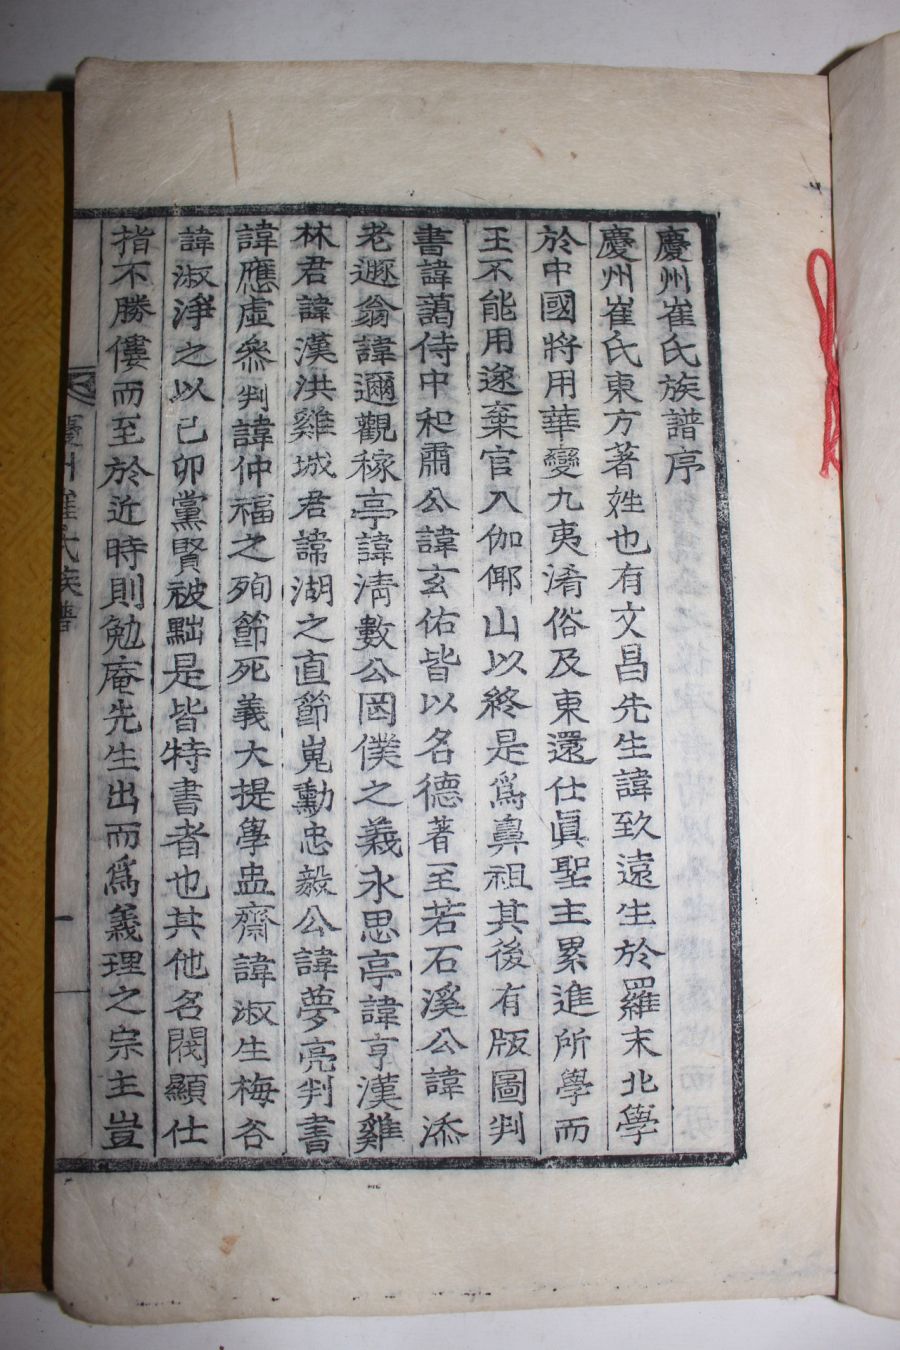 慶州崔氏族譜序
慶州崔氏東方著姓也有文昌先生諱致遠生於羅末北學
於中國將用華變九夷淆俗及東還仕眞聖主累進所學而
王不能用遂棄官入伽倻山以終是爲鼻祖其後有版圖判
書諱藹侍中和肅公諱玄佑皆以名德著至若石溪公諱添
老遯翁諱邇觀稼亭諱淸數公罔僕之義永思亭諱亨漢雞
林君諱漢洪雞城君諱湖之直節嵬勳忠毅公諱夢亮判書
諱應虛參判諱仲福之殉節死義大提學盅齋諱淑生梅谷
諱淑淨之以己卯黨賢被黜是皆特書者也其他名閥顯仕
指不勝僂而至於近時則勉庵先生出而爲義理之宗主豈
慶州崔氏族譜